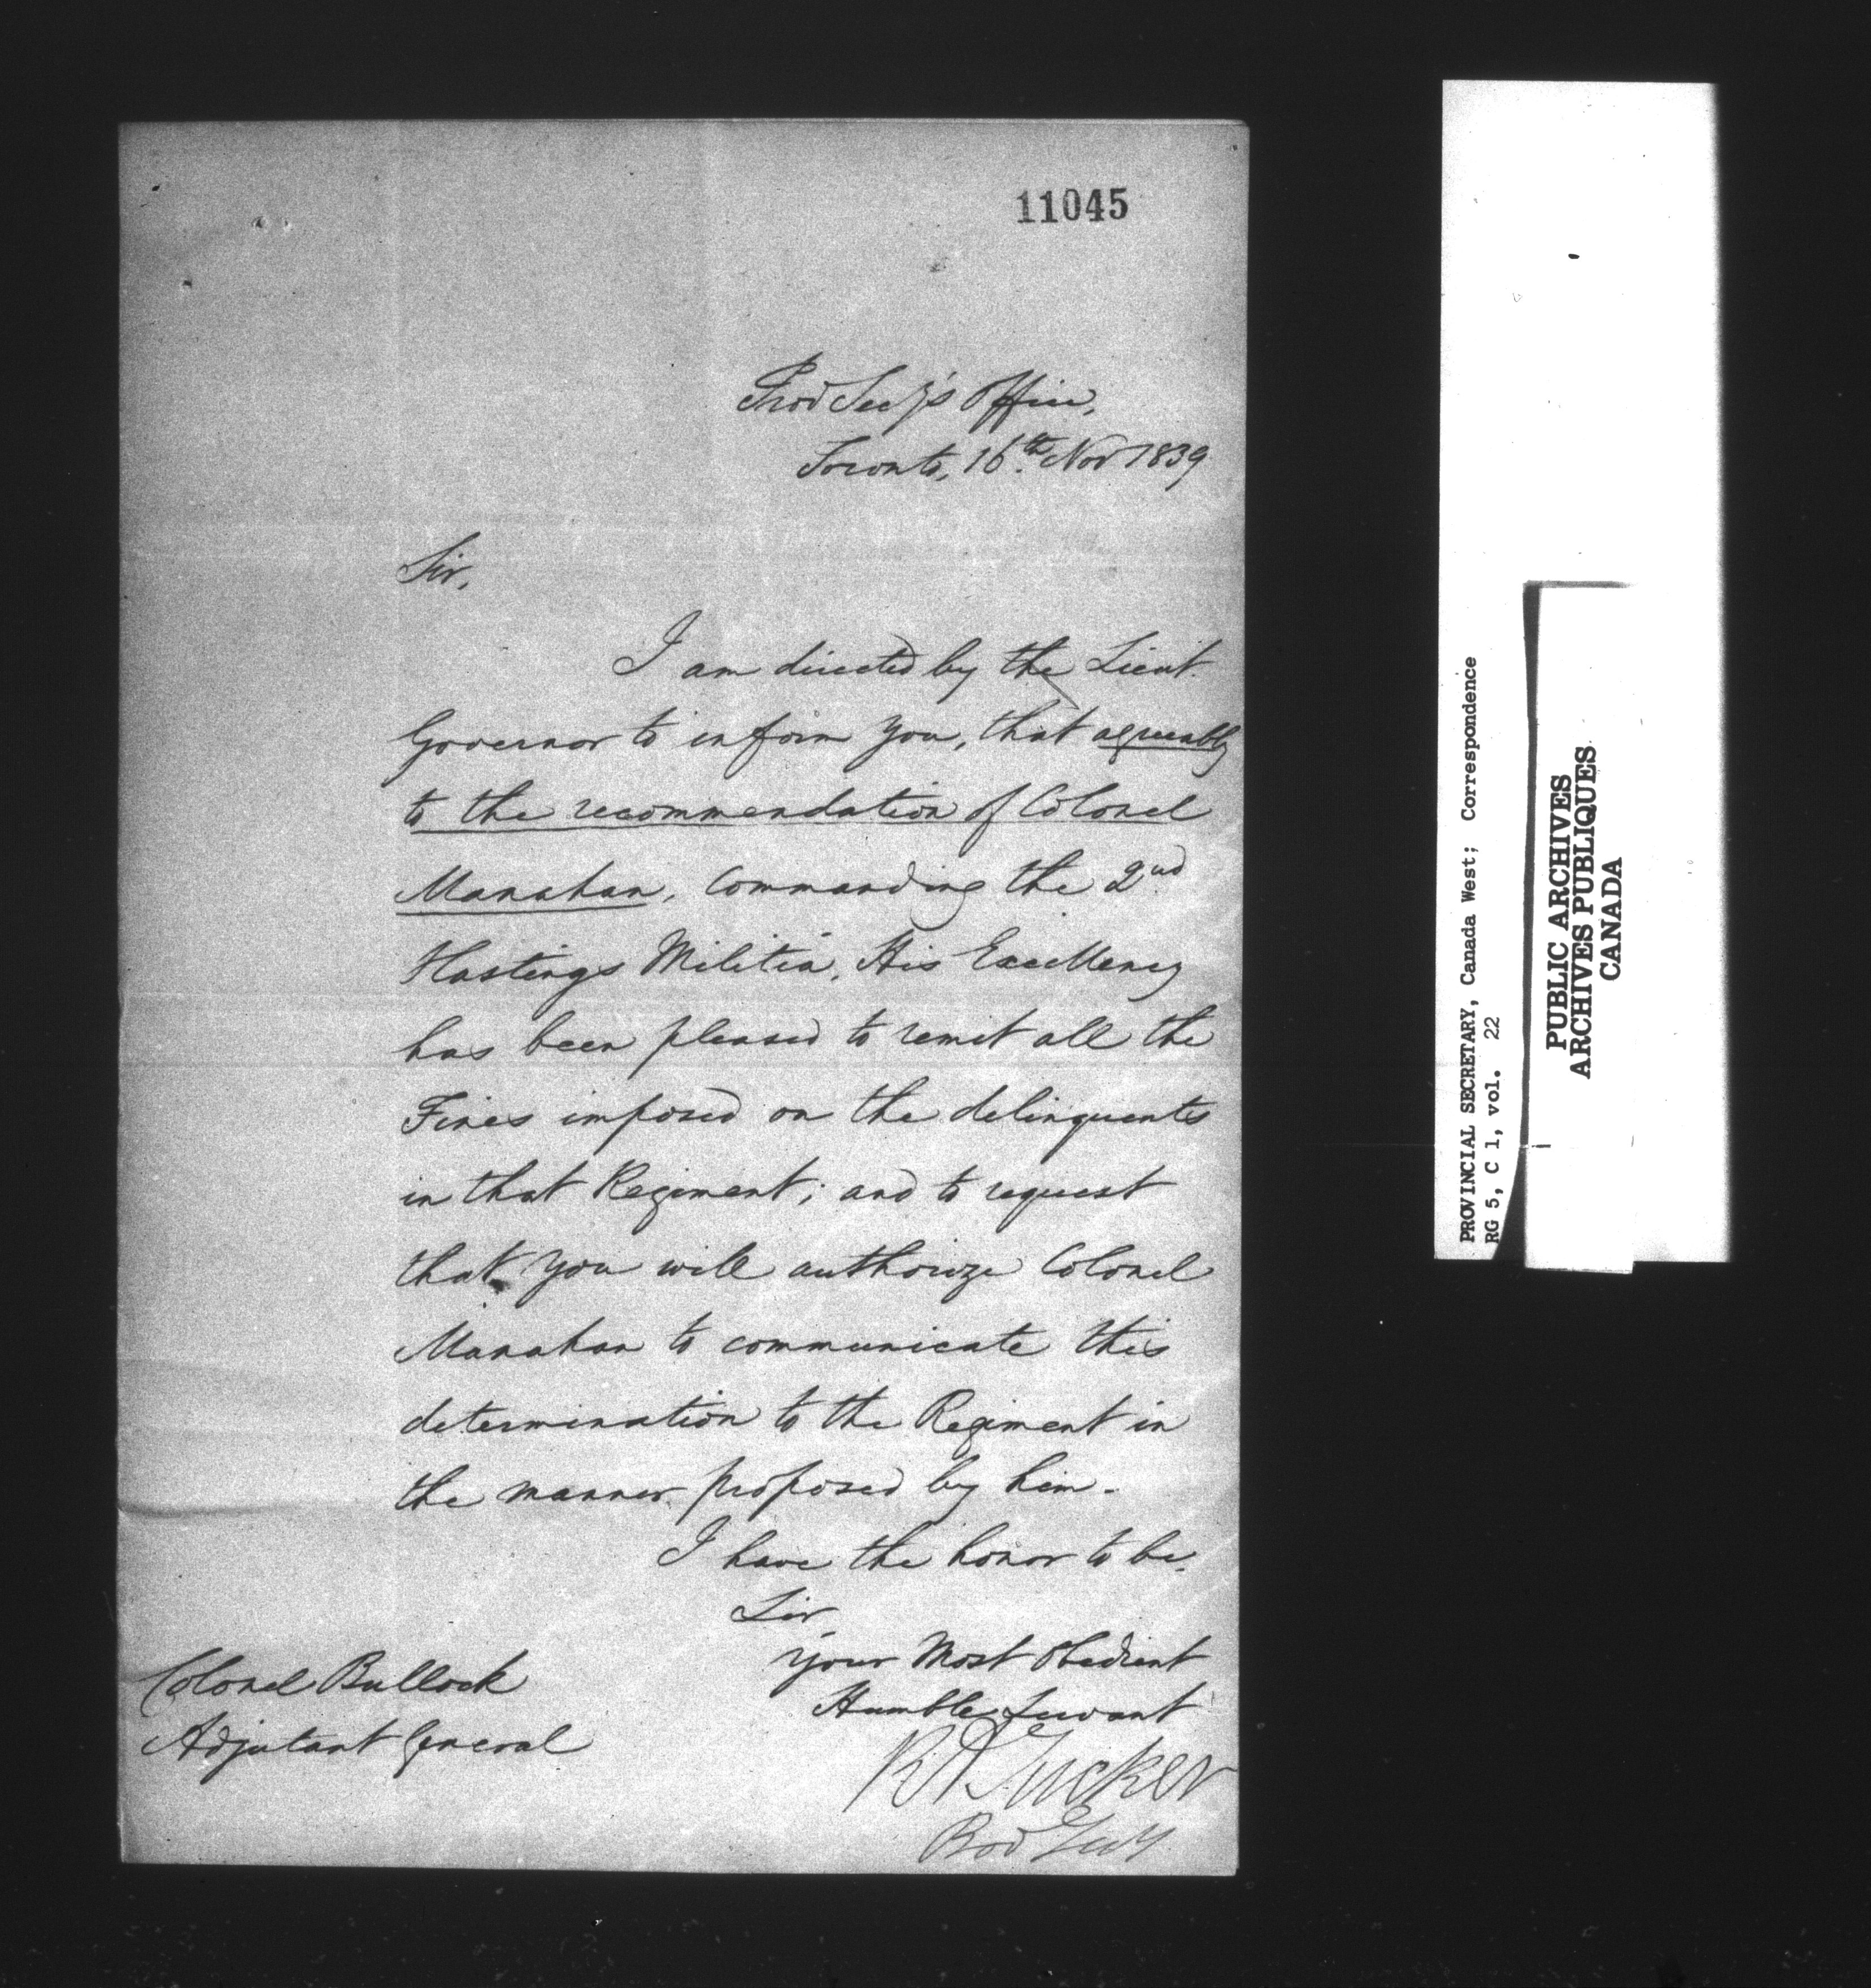 11045
Prov Secy's Office,
Toronto, 16th Nov 1839
Sir,
I am directed by the Lieut.
Governor to inform you, that agreeably
to the recommendation of Colonel
Manahan, Commanding the 2nd
Hastings Militia, His Excellency
has been pleased to remit all the
Fines imposed on the delinquents
in that Regiment; and to request
that you will authorize Colonel
Manahan to communicate this
determination to the Regiment in
the manner proposed by him.
I have the honor to be,
Sir
Your Most Obedient
Humble Servant
R A Tucker
Prov Secy
Colonel Bullock
Adjutant General
PROVINCIAL SECRETARY, Canada West; Correspondence
RG 5, C 1, vol. 22
PUBLIC ARCHIVES
ARCHIVES PUBLIQUES
CANADA